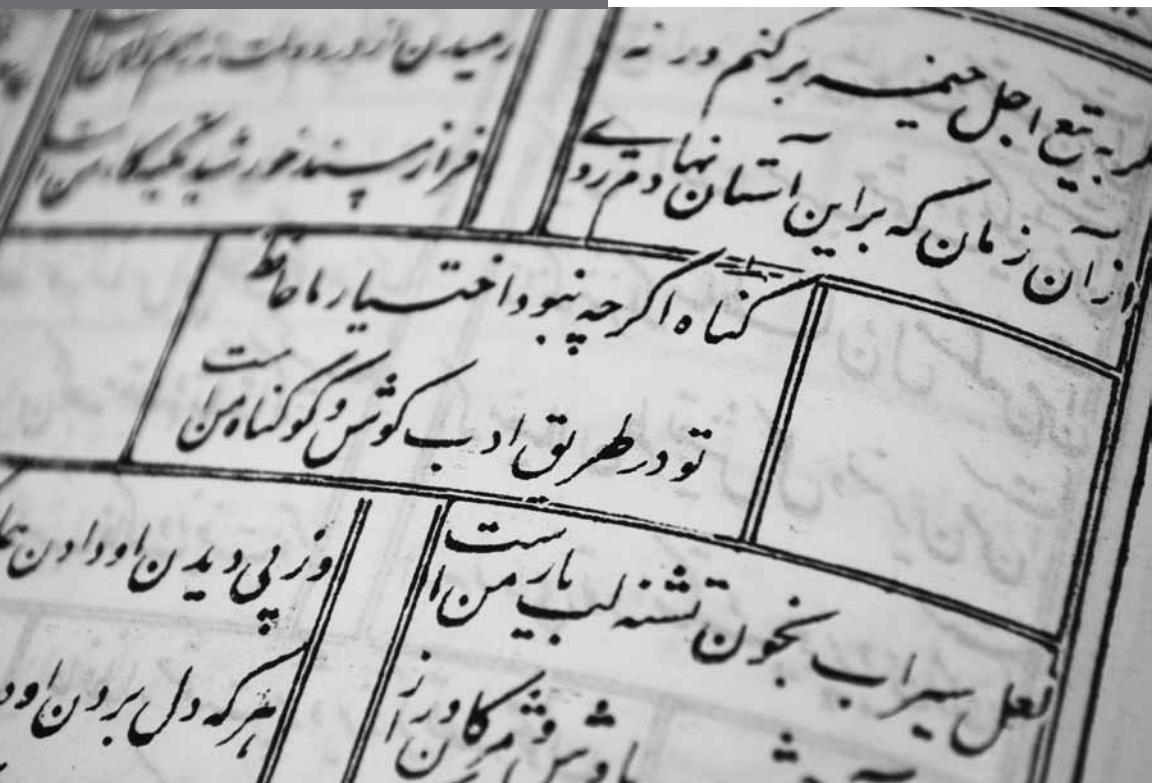 به تیغ اجل خیمه برکنم ورنه رمیدن از در دولت نه رسم
ازان زمان که براین آستان نهادم رو فراز مسند خورشید تکیه گاه من است
گناه اگرچه نبود اختیار ما حافظ
تو در طریق ادب کوش و گو گناه من است
لعل سیراب بخون تشنه لب یار من است وز پی دیدن او دادن
هرکه دل بردن او